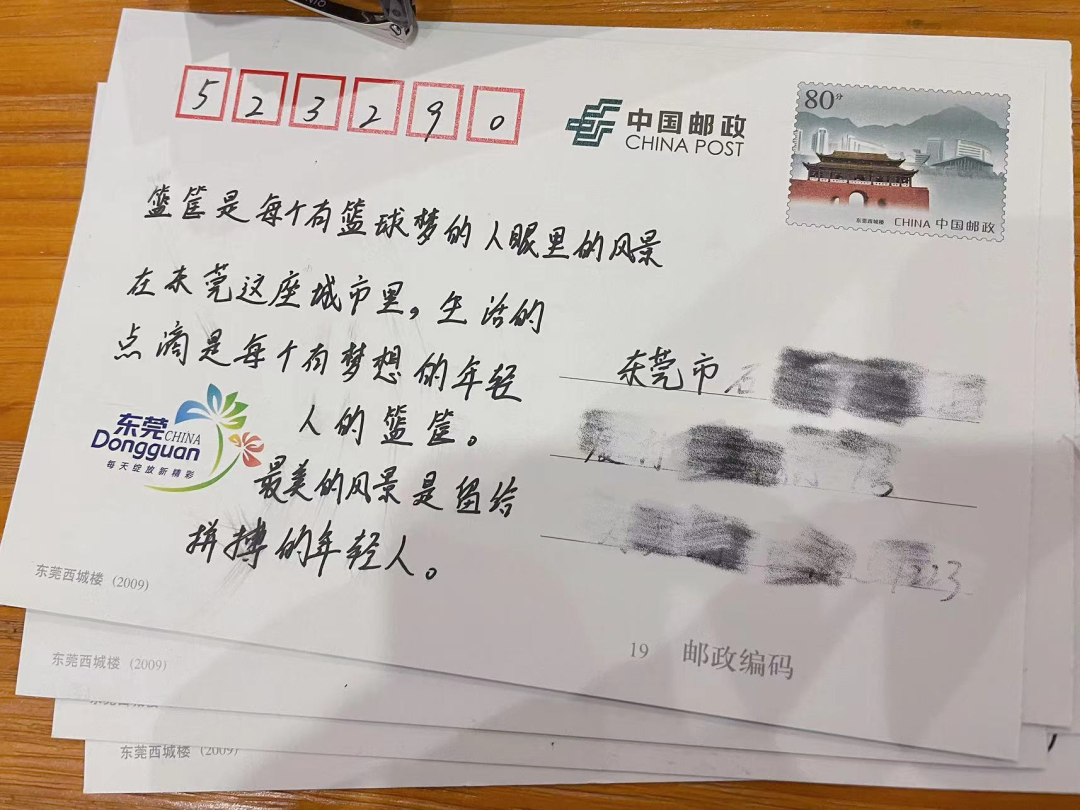 523290
中国邮政
CHINA POST
80分
东莞西城楼
CHINA 中国邮政
篮筐是每个有篮球梦的人眼里的风景
在东莞这座城市里，生活的
点滴是每个有梦想的年轻
人的篮筐。
最美的风景是留给
拼搏的年轻人。
东莞市
223
东莞 CHINA
Dongguan
每天绽放新精彩
东莞西城楼 (2009)
19 邮政编码
东莞西城楼 (2009)
东莞西城楼 (2009)